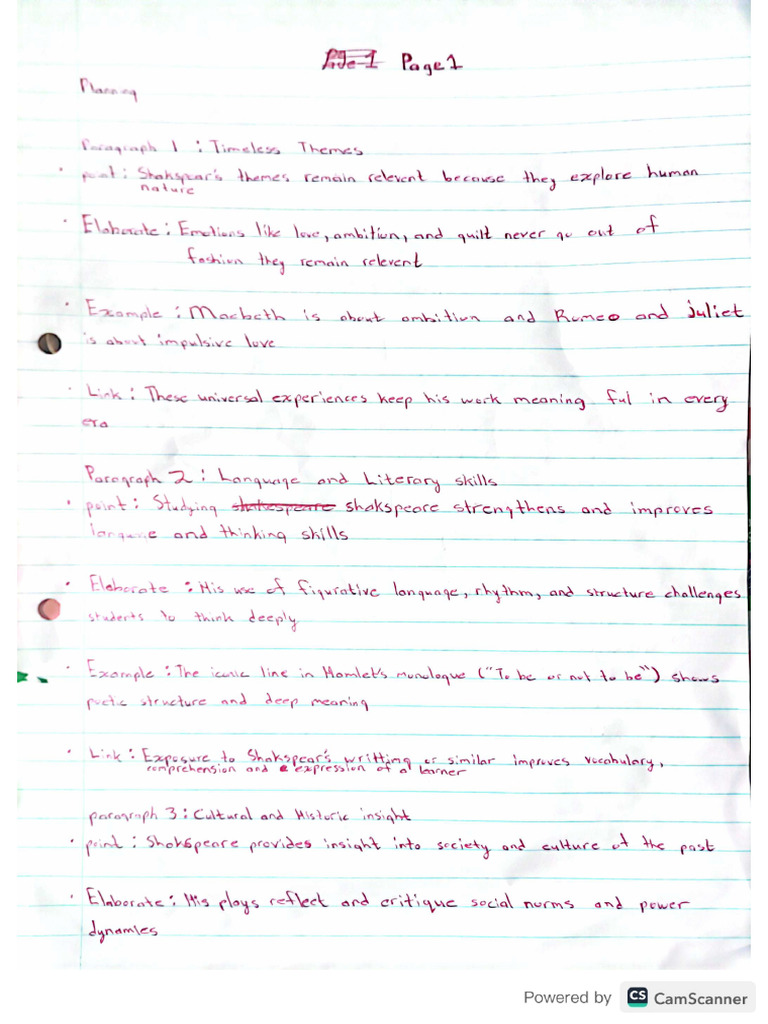 Page 1 Page 1
Planning
Paragraph 1 : Timeless Themes
• point : Shakspear's themes remain relevent because they explore human
nature
• Elaborate : Emotions like love, ambition, and quilt never go out of
fashion they remain relevent
• Example : Macbeth is about ambition and Romeo and juliet
is about impulsive love
• Link : These universal experiences keep his work meaning ful in every
era
Paragraph 2 : Language and Literary skills
• point : Studying shakespeare shakspeare strengthens and improves
languge and thinking skills
• Elaborate : His use of figurative language, rhythm, and structure challenges
students to think deeply
• Example : The iconic line in Hamlet's monologue ("To be or not to be") shows
poetic structure and deep meaning
• Link : Exposure to Shakspear's writting or similar improves vocabulary,
comprehension and expression of a learner
paragraph 3 : Cultural and Historic insight
• point : Shakspeare provides insight into society and culture of the past
• Elaborate : His plays reflect and critique social norms and power
dynamics
Powered by CS CamScanner